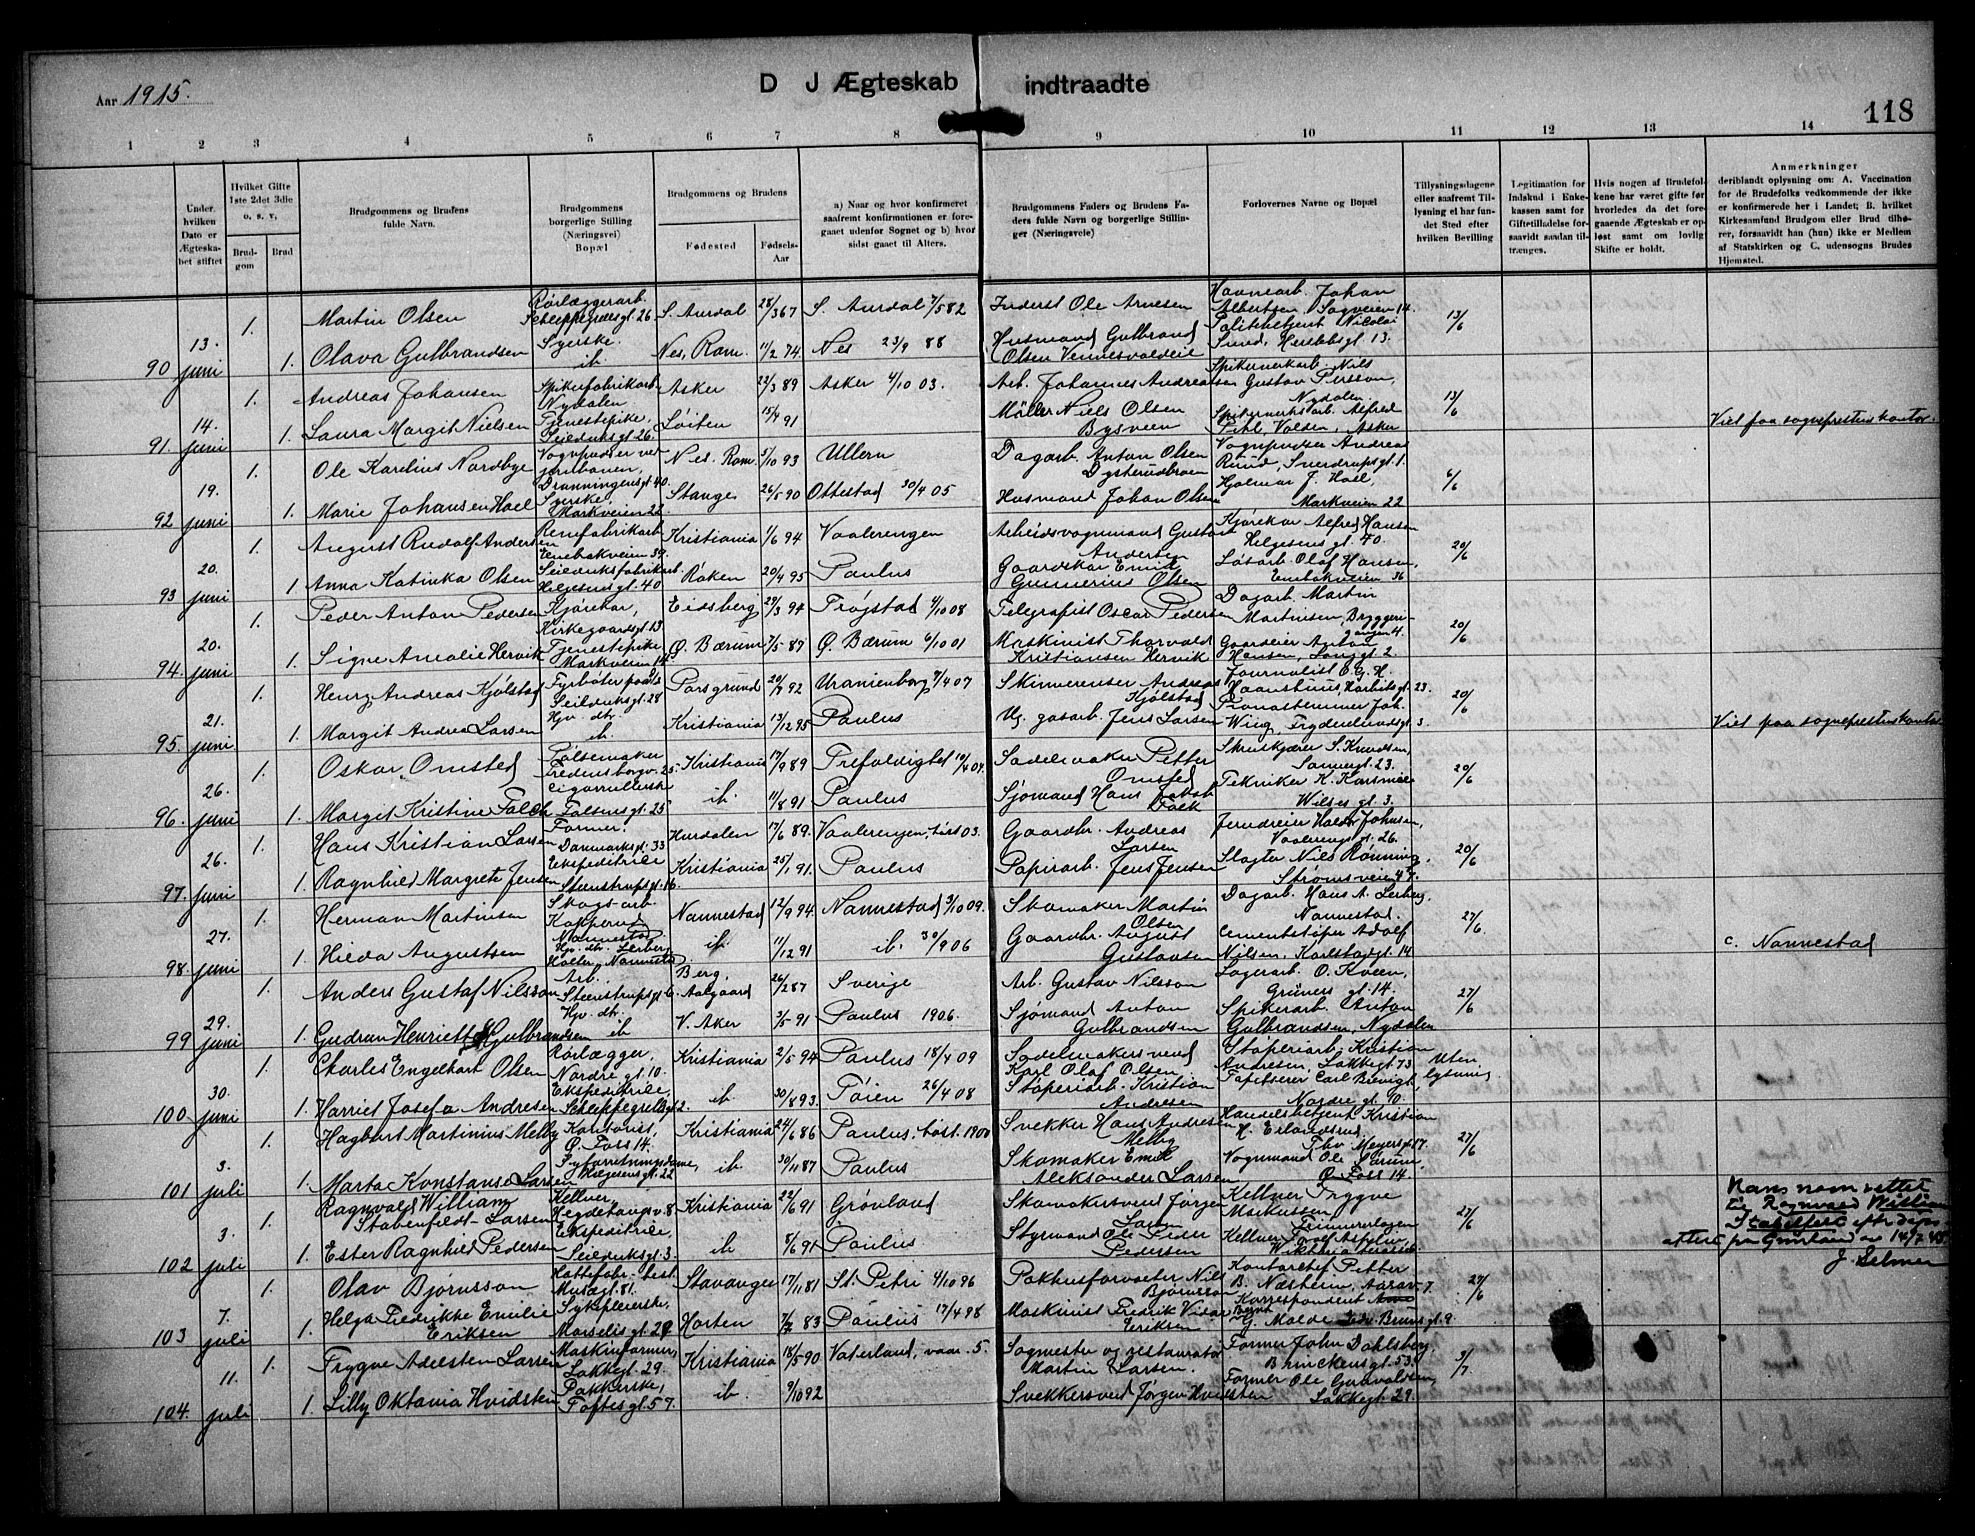 Aar 1915.
D J Ægteskab indtraadte
118
1 2 3 4 5 6 7 8 9 10 11 12 13 14
Under hvilken Dato er Ægteskabet stiftet
Hvilket Gifte 1ste 2det 3die o. s. v,
Brudgom
Brud
Brudgommens og Brudens fulde Navn.
Brudgommens borgerlige Stilling (Næringsvei) Bopæl
Brudgommens og Brudens
Fødested
Fødsels-Aar
a) Naar og hvor konfirmeret saafremt konfirmationen er foregaaet udenfor Sognet og b) hvor sidst gaaet til Alters.
Brudgommens Faders og Brudens Faders fulde Navn og borgerlige Stillinger (Næringsveie)
Forlovernes Navne og Bopæl
Tillysningsdagene eller saafremt Tillysning ei har fundet Sted efter hvilken Bevilling
Legitimation for Indskud i Enkekassen samt for Giftetilladelse forsaavidt saadan tiltrænges.
Hvis nogen af Brudefolkene har været gifte før hvorledes da det foregaaende Ægteskab er opløst samt om lovlig Skifte er holdt.
Anmerkninger deriblandt oplysning om: A. Vaccination for de Brudefolks vedkommende der ikke er konfirmerede her i Landet; B. hvilket Kirkesamfund Brudgom eller Brud tilhører, forsaavidt han (hun) ikke er Medlem af Statskirken og C. udensogns Brudes Hjemsted.
90 13. juni 1. Martin Olsen Rørlæggerarb. Schleppegrelsgt. 26 S. Aurdal 28/3 67 S. Aurdal 7/5 82 Inderst Ole Arnesen Havnearb. Johan Albertsen, Sagveien 14. 13/6
1. Olava Gulbrandsen Syerske ib Nes, Rom. 11/2 74. Nes 23/9 88 Husmand Gulbrand Olsen Politibetjent Nicolai Sund, 13.
91. 14. juni 1. Andreas Johansen Spikerfabrikarb. Nydalen. Asker 22/3 89 Asker 4/10 03. Arb. Johannes Andreassen Spikerverkarb. Nils Gustav Persson, Nydalen. 13/6
1. Laura Margit Nielsen Tjenestepike, Seilduksgt. 26. Løiten 15/4 91 Møller Niels Olsen Bysveen Spikerverksarb. Alfred Pihl, Volden, Asker Viet paa sogneprestens kontor.
92 19. juni 1. Ole Karelius Nordbye Vognpudser ved jernbanen, Dronningensgt. 40. Nes. Rom. 5/10 93 Ullern Dagarb. Anton Olsen Dysterudbroen Vognpudser Andreas Ruud, Sverdrupsgt. 1. 6/6
1. Marie Johansen Hoel Syerske. Markveien 22 Stange 26/5 90 Ottestad 30/4 05 Husmand Johan Olsen Hjalmar J. Hoel, Markveien 22
93 20. juni 1. August Rudolf Andersen Renefabrikarb. Enebakveien 39. Kristiania 1/6 94 Vaalerengen Arbeidsvognmand Gustav Andersen Kjørekar Alfred Hansen Helgesens gt. 40. 20/6
1 Anna Katinka Olsen Seilduksfabrikarb. Helgesens gt. 40 Røken 20/4 95 Paulus Gaardskar Emil Gunnerius Olsen Løsarb. Olaf Hansen, Enebakveien 36
94. 20. juni 1. Peder Anton Pedersen Kjørekar, Kirkegaardsgt. 13 Eidsberg 29/3 94 Trøgstad 4/10 08 Telegrafist Oscar Pedersen Dagarb. Martin Martinsen, Bryggerigangen 4. 20/6
1. Signe Amalie Hervik Tjenestepike Markveien 14. Ø. Bærum 7/5 87 Ø. Bærum 6/10 01 Maskinist Thorvald Kristiansen Hervik Gaardeier Anton Hansen, Langgt. 2
95. 21. juni 1. Henry Andreas Kjølstad Fyrbøter Seilduksgt. 28 Porsgrund 20/7 92 Uranienborg 7/4 07 Skinverenser Andreas Kjølstad Journalist O. G. H. 23. 20/6
1. Margit Andrea Larsen Hjv. dtr. ib Kristiania 13/12 95 Paulus Ug. gasarb. Jens Larsen Pianostemmer Joh. Wiig, Frydenlundsgt. 3. Viet paa sogneprestens kontor
96. 26. juni 1. Oskar Omsted Pølsemaker Fredensborgv. 25 Kristiania 17/9 89 Trefoldighed 10/4 04. Sadelmaker Petter Omsted Skruskjærer S. Knudsen, Sannergt. 23. 20/6
1. Margit Kristine Falch Cigarrullerske Falsensgt. 25 ib. 11/8 91 Paulus Sjømand Hans Jakob Falk Tekniker K. Wilses gt. 3.
97. 26. juni 1. Hans Kristian Larsen Former. Danmarksgt. 33 Hurdalen 17/6 89. Vaalerengen, høst 03. Gaardbr. Andreas Larsen Jerndreier Haldor Johnsen, Vaalerenggt. 26. 20/6
1. Ragnhild Margrete Jensen Ekspeditrice Steenstrupsgt. 16. Kristiania 25/1 91. Paulus Papirarb. Jens Jensen Slagter Nils Rønning, Strømsveien 47.
98. 27. juni 1. Herman Martinsen Skogsarb. Nannestad Nannestad 12/9 94. Nannestad 3/10 09. Skomaker Martin Olsen Dagarb. Hans A. Lerberg, Nannestad. 27/6.
1. Hilda Augustsen Hjv. dtr. Lerberg Holter, Nannestad ib. 11/12 91 ib. 30/9 06 Gaardbr. August Gustavsen Cementstøper Adolf Nilsen, Karlstadgt. 14 c. Nannestad
99 29. juni 1. Anders Gustaf Nilsson Arb. Steenstrupsgt. 6. Berg, Aalgaard 26/2 87 Sverige Arb. Gustav Nilsson Lagerarb. O. Kveen, Grüners gt. 14. 27/6
1. Gudrun Henriette Gulbrandsen Hjv. dtr. ib V. Aker 3/5 91 Paulus 1906. Sjømand Anton Gulbrandsen Spikerarb. Anton Gulbrandsen, Nydalen
100 30. juni 1. Charles Engelhart Olsen Rørlægger, Nordre gt. 10. Kristiania 2/5 94 Paulus 18/4 09 Sadelmakersvend Karl Olaf Olsen Støperiarb. Kristian Andresen, Lakkegt. 73 Uten lysning.
1. Harriet Josefa Andresen Ekspeditrice Schleppegrellsgt 2. ib. 30/8 93. Tøien 26/4 08 Støperiarb. Kristian Andresen Tapetserer Carl Nordre gt. 90.
101 3. juli 1. Hagbart Martinius Melby Kontorist, Ø. Foss 14. Kristiania 24/6 86 Paulus, høst 1900 Snekker Hans Andresen Melby Handelsbetjent Kristian H. Erlandsrud, Thv. Meyersgt. 17. 27/6
1. Marta Konstanse Larsen Syforretningsdame, Hægeiens gt. 22 ib. 30/11 87 Paulus Skomaker Emil Aleksander Larsen Vognmand Ole Sørum, Ø. Foss 14.
102 3. juli 1. Ragnvald William Stabenfeldt-Larsen Kellner Hegdehaugsv. 8 Kristiania 22/6 91 Grønland Skomakersvend Jørgen Larsen Kellner Trygve Markussen Tømmerhagen 27/6 Hans navn rettet til Ragnvald William
1. Ester Ragnhild Pedersen Ekspeditrice, Seilduksgt. 3. ib 8/6 91 Paulus Styrmand Ole Peder Pedersen Kellner Josef Asfelm, J. Selmer
103 7. juli 1. Olav Bjørnsson Hattefabr.-best. Musægt. 81. Stavanger 17/11 81 St. Petri 4/10 96 Pakhusforvalter Nils Bjørnsson Kontorchef Petter B. Næsheim, 7. 27/6
1. Helga Fredrikke Emilie Eriksen Sykepleierske, Marselis gt. 29 Horten 7/7 83 Paulus 17/4 98 Maskinist Fredrik Vidar Eriksen Korrespondent Bernt G. Molde, Edv. Bruns gt. 9.
104. 11. juli 1. Trygve Adelsten Larsen Maskinformer, Lakkegt. 29. Kristiania 18/5 90 Vaterland, vaar. 5. Sagmester og restauratør Martin Larsen. Former John Dahlsberg, Brinckensgt. 53. 3/7.
1. Lilly Oktavia Hvidsten Pakkerske, Toftesgt. 59. ib. 9/10 92 Snekkersvend Jørgen Hvidsten Former Ole Gunvaldsen, Lakkegt. 29.